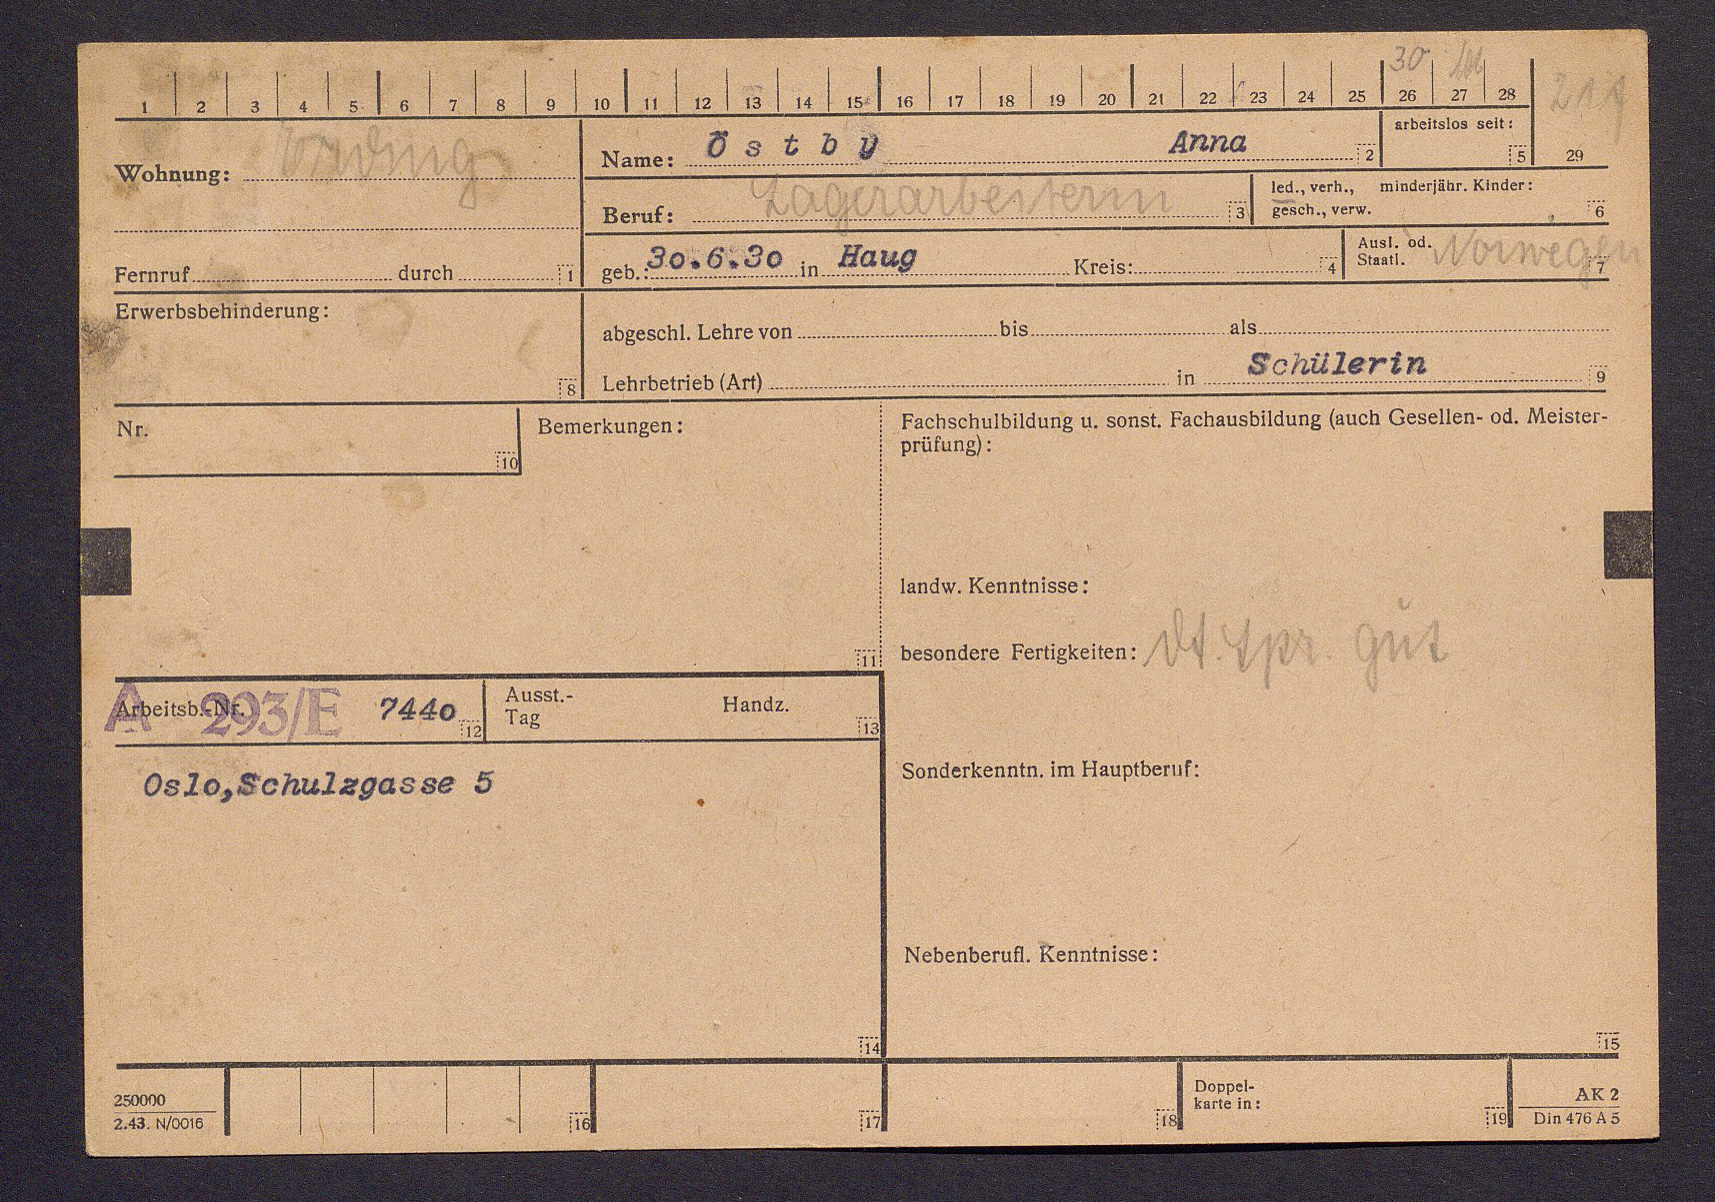 30
1 2 3 4 5 6 7 8 9 10 11 12 13 14 15 16 17 18 19 20 21 22 23 24 25 26 27 28
Wohnung:
Name: Östby Anna 2
arbeitslos seit: 5
29
Beruf: Lagerarbeiterin 3
led., verh., minderjähr. Kinder:
gesch., verw. 6
Fernruf durch 1
geb.: 30.6.30 in Haug Kreis: 4
Ausl. od. Staatl. Norwegen 7
Erwerbsbehinderung: 8
abgeschl. Lehre von bis als
Lehrbetrieb (Art) in Schülerin 9
Nr. 10
Bemerkungen: 11
Fachschulbildung u. sonst. Fachausbildung (auch Gesellen- od. Meister-
prüfung):
landw. Kenntnisse:
besondere Fertigkeiten: dt. spr. gut
Arbeitsb.-Nr. A 293/E 7440 12
Ausst.-
Tag Handz. 13
Oslo,Schulzgasse 5
Sonderkenntn. im Hauptberuf:
Nebenberufl. Kenntnisse:
14
15
250000
2.43. N/0016
16
17
18
Doppel-
karte in: 19
AK 2
Din 476 A 5